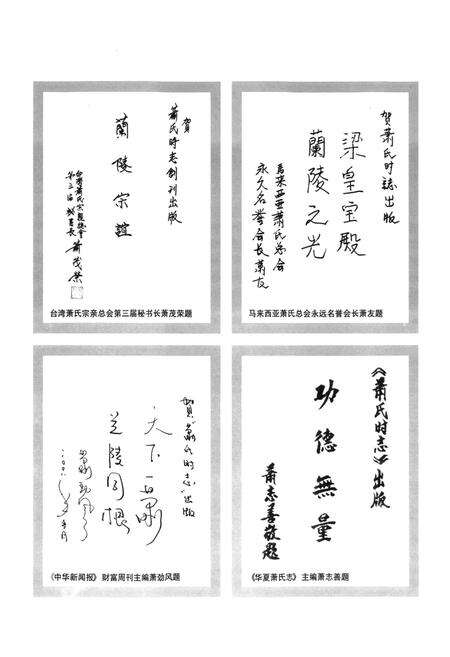 賀
萧氏时志創刊出版
蘭陵宗誼
台灣萧氏宗親總會
第三屆秘書長 萧茂榮
台湾萧氏宗亲总会第三届秘书长萧茂荣题
贺萧氏时誌出版
梁皇宝殿
蘭陵之光
马来西亚萧氏总会
永久名誉会长萧友
马来西亚萧氏总会永远名誉会长萧友题
賀“萧氏时志”出版
天下一萧
兰陵同根
萧劲风
《中华新闻报》财富周刊主编萧劲风题
《萧氏时志》出版
功德無量
萧志善敬题
《华夏萧氏志》主编萧志善题